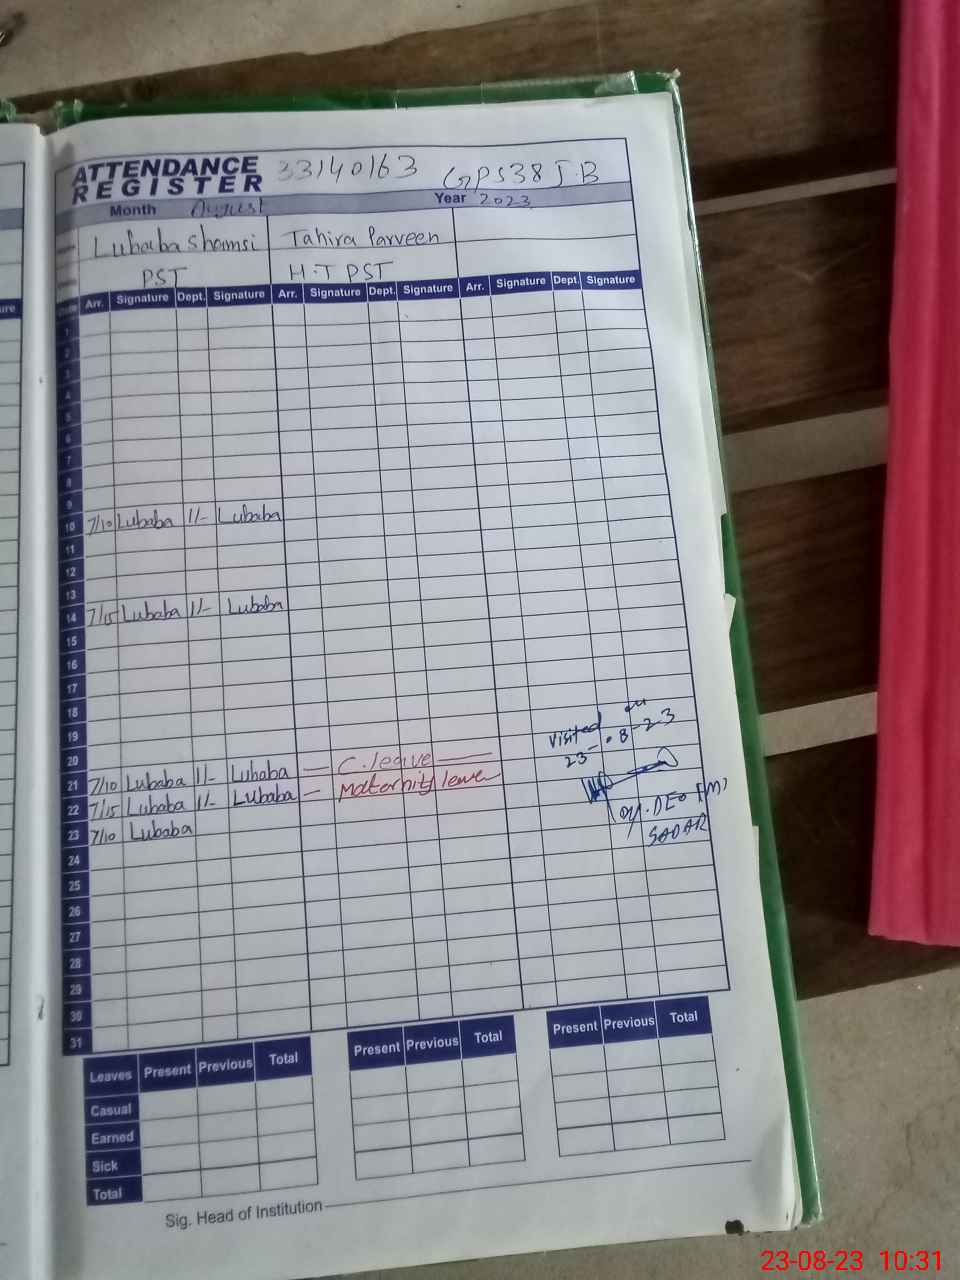 ATTENDANCE REGISTER 33140163 GPS 38 J.B
Month August Year 2023
Lubaba Shamsi Tahira Parveen
PST H.T PST
Arr. Signature Dept. Signature Arr. Signature Dept. Signature Arr. Signature Dept. Signature
1
2
3
4
5
6
7
8
9
10 7/10 Lubaba 1/- Lubaba
11
12
13
14 7/15 Lubaba 1/- Lubaba
15
16
17
18
19
20
21 7/10 Lubaba 1/- Lubaba — C.leave —
22 7/15 Lubaba 1/- Lubaba — Maternity leave
23 7/10 Lubaba
24
25
26
27
28
29
30
31
Visited on
23-08-23
Dy. DEO (M)
SADAR
Leaves Present Previous Total Present Previous Total Present Previous Total
Casual
Earned
Sick
Total
Sig. Head of Institution
23-08-23 10:31